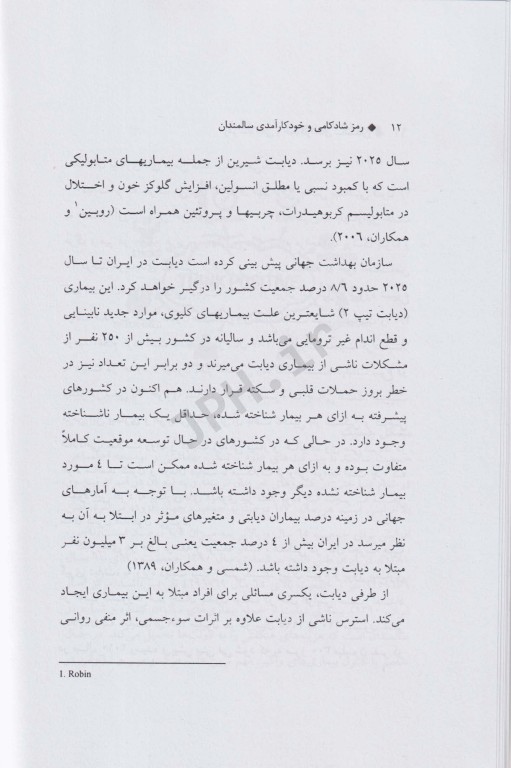 ۱۲ ◆ رمز شادکامی و خودکارآمدی سالمندان
سال ۲۰۲۵ نیز برسد. دیابت شیرین از جمله بیماریهای متابولیکی
است که با کمبود نسبی یا مطلق انسولین، افزایش گلوکز خون و اختلال
در متابولیسم کربوهیدرات، چربیها و پروتئین همراه است (روبین۱ و
همکاران، ۲۰۰۶).
سازمان بهداشت جهانی پیش بینی کرده است دیابت در ایران تا سال
۲۰۲۵ حدود ۸/۶ درصد جمعیت کشور را درگیر خواهد کرد. این بیماری
(دیابت تیپ ۲) شایعترین علت بیماریهای کلیوی، موارد جدید نابینایی و
قطع اندام غیر ترومایی می‌باشد و سالیانه در کشور بیش از ۲۵۰ نفر از
مشکلات ناشی از بیماری دیابت می‌میرند و دو برابر این تعداد نیز در
خطر بروز حملات قلبی و سکته قرار دارند. هم اکنون در کشورهای
پیشرفته به ازای هر بیمار شناخته شده، حداقل یک بیمار ناشناخته
وجود دارد. در حالی که در کشورهای در حال توسعه موقعیت کاملاً
متفاوت بوده و به ازای هر بیمار شناخته شده ممکن است تا ٤ مورد
بیمار شناخته نشده دیگر وجود داشته باشد. با توجه به آمارهای
جهانی در زمینه درصد بیماران دیابتی و متغیرهای مؤثر در ابتلا به آن به
نظر میرسد در ایران بیش از ٤ درصد جمعیت یعنی بالغ بر ۳ میلیون نفر
مبتلا به دیابت وجود داشته باشد. (شمسی و همکاران، ۱۳۸۹)
از طرفی دیابت، یکسری مسائلی برای افراد مبتلا به این بیماری ایجاد
می‌کند. استرس ناشی از دیابت علاوه بر اثرات سوءجسمی، اثر منفی روانی
1. Robin
JPH.ir